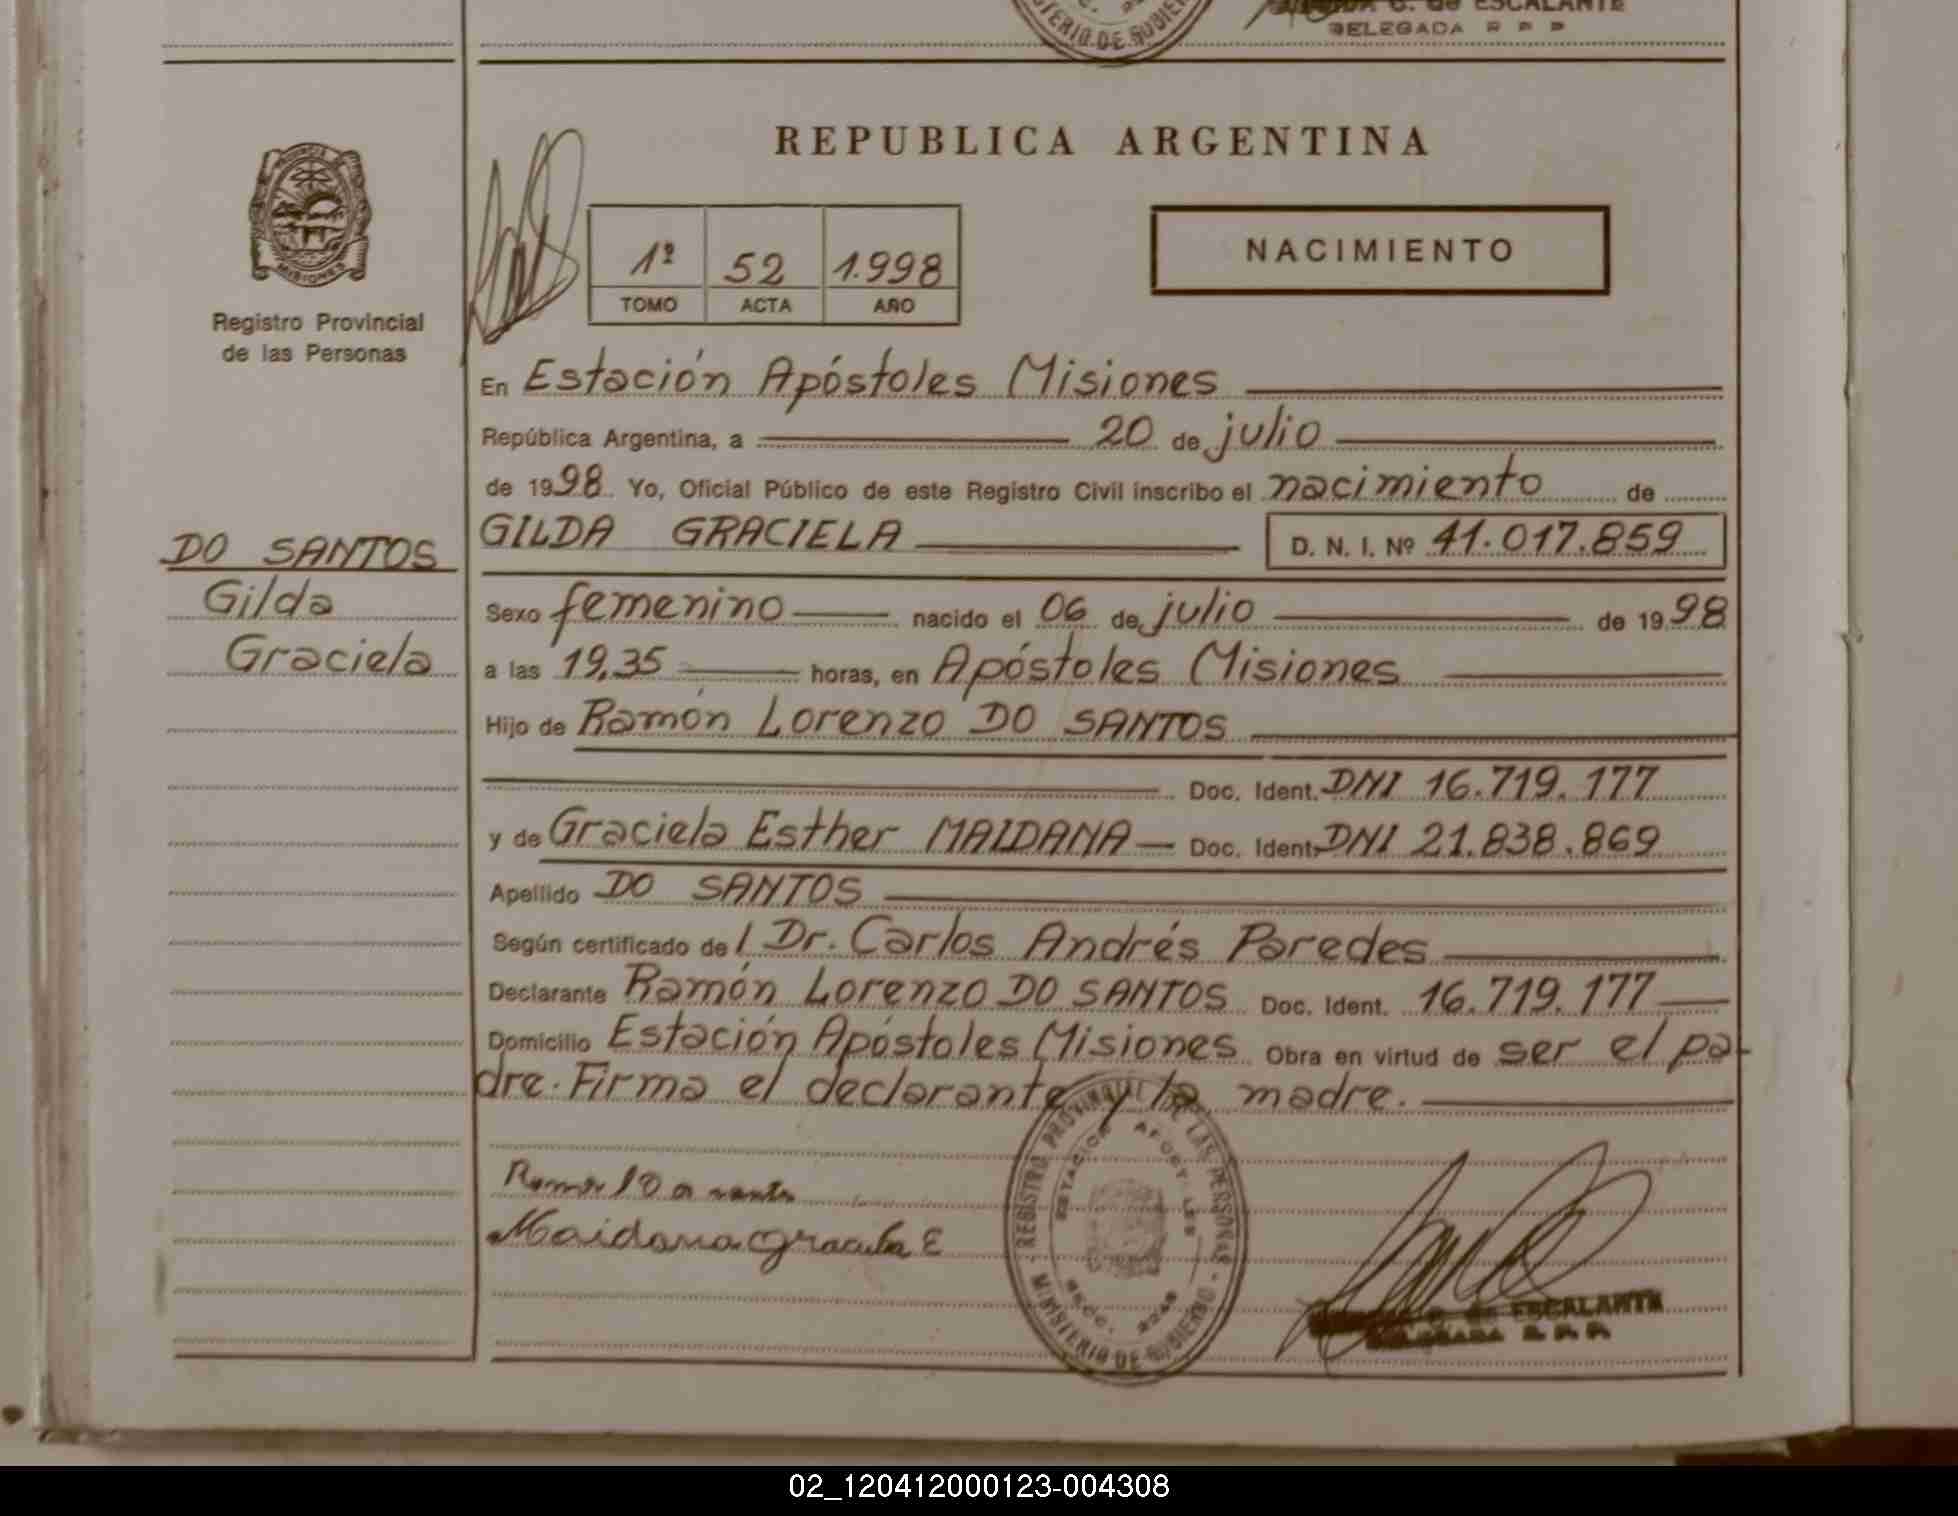 C. de ESCALANTE
DELEGADA R P P
MINISTERIO DE GOBIERNO
REPUBLICA ARGENTINA
PROVINCIA DE
MISIONES
Registro Provincial
de las Personas
1º 52 1.998
TOMO ACTA AÑO
NACIMIENTO
En Estación Apóstoles Misiones
República Argentina, a 20 de julio
de 1998 Yo, Oficial Público de este Registro Civil inscribo el nacimiento de
GILDA GRACIELA D. N. I. Nº 41.017.859
DO SANTOS
Gilda
Graciela
Sexo femenino nacido el 06 de julio de 1998
a las 19,35 horas, en Apóstoles Misiones
Hijo de Ramón Lorenzo DO SANTOS
Doc. Ident. DNI 16.719.177
y de Graciela Esther MAIDANA — Doc. Ident. DNI 21.838.869
Apellido DO SANTOS
Según certificado de l Dr. Carlos Andrés Paredes
Declarante Ramón Lorenzo DO SANTOS Doc. Ident. 16.719.177
Domicilio Estación Apóstoles Misiones Obra en virtud de ser el pa-
dre. Firma el declarante y la madre.
Maidana Graciela E
REGISTRO PROVINCIAL DE LAS PERSONAS
ESTACION APOSTOLES
SECC. 2248
MINISTERIO DE GOBIERNO
C. de ESCALANTE
DELEGADA R. P. P.
02_120412000123-004308